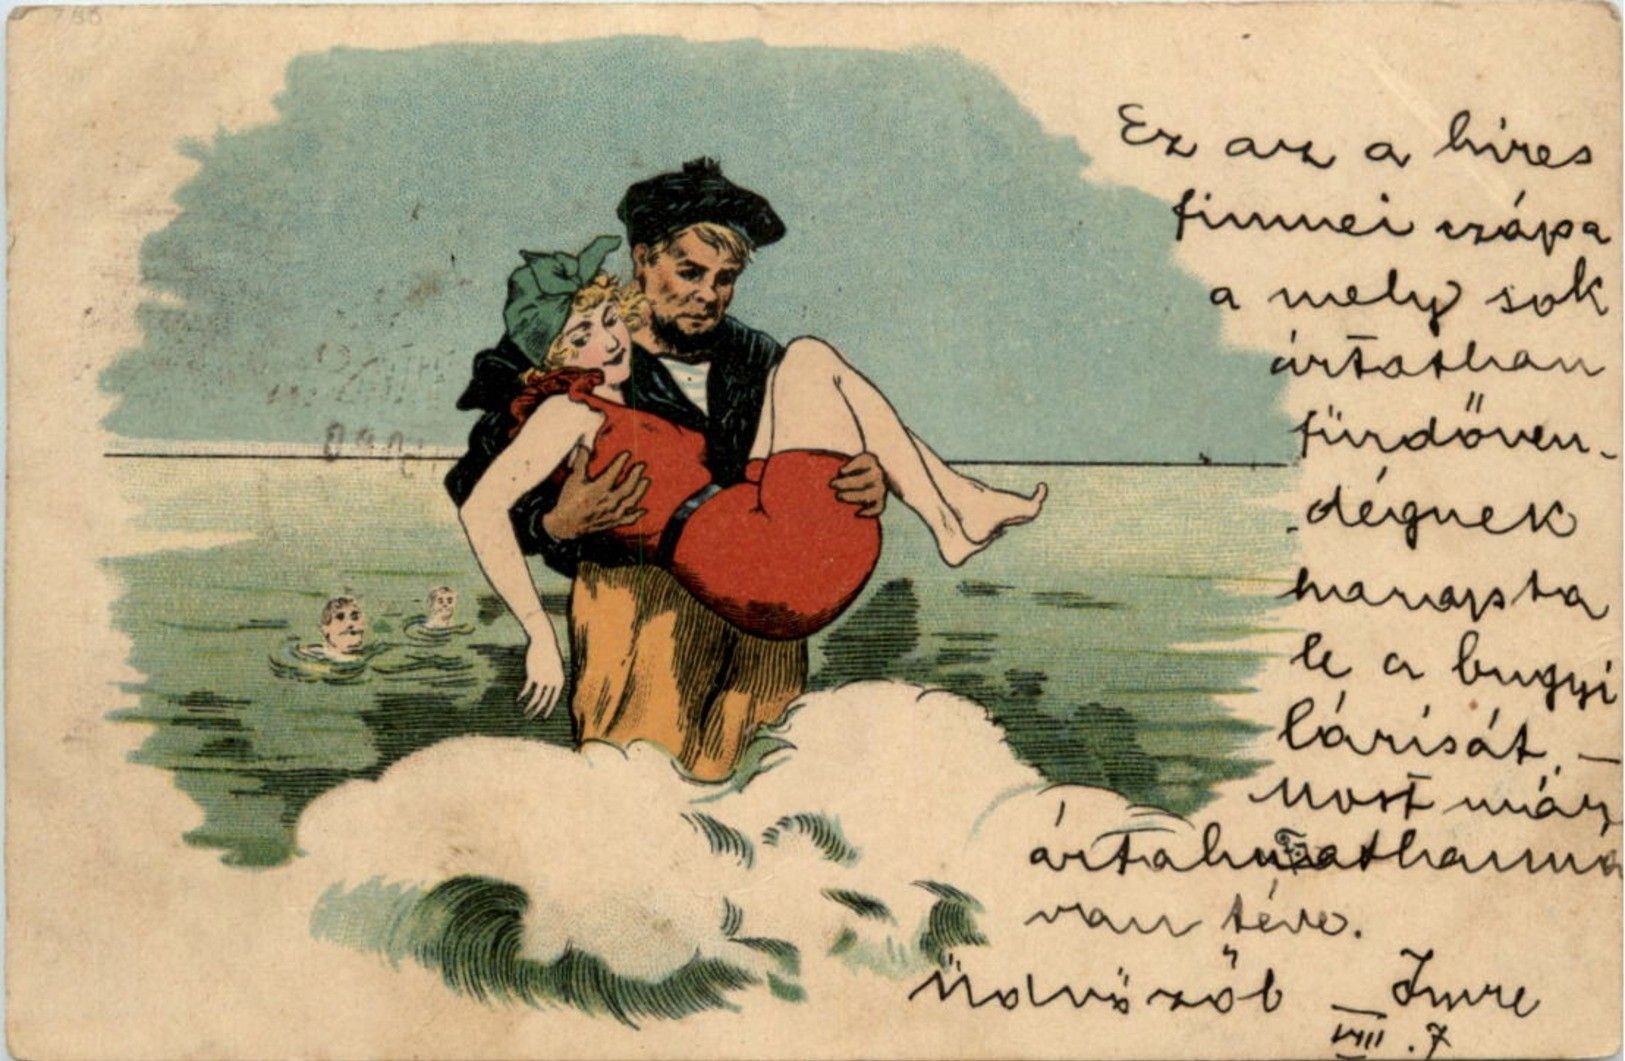 Ez az a hires
fiumei czápa
a mely sok
ártatlan
fürdőven-
-dégnek
harapta
le a bugyi
lárisát. —
Most már
ártalmatlanná
van téve.
Üdvözöl — Imre
VIII. 7